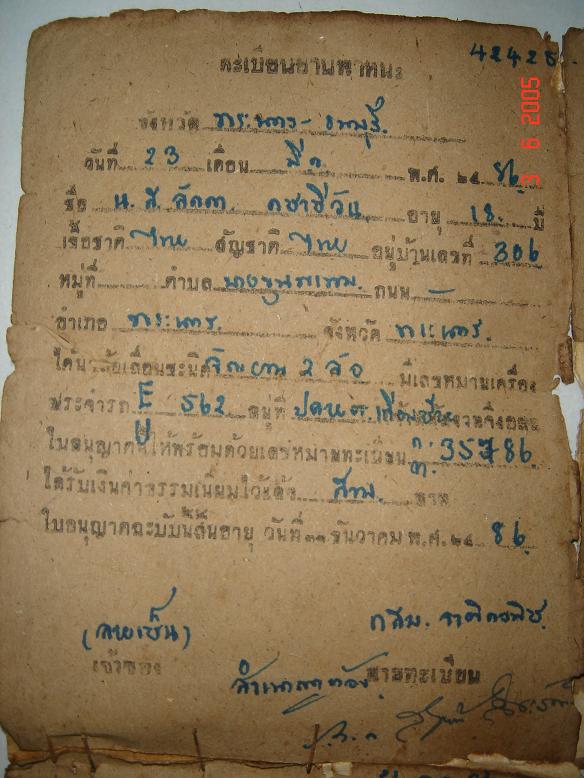 42428
ทะเบียนยานพาหนะ
จังหวัด พระนคร-ธนบุรี.
วันที่ 23 เดือน มี.ค พ.ศ. ๒๔ 86
ชื่อ น.ส. อายุ 18. ปี
เชื้อชาติ ไทย สัญชาติ ไทย อยู่บ้านเลขที่ 306
หมู่ที่ ตำบล บางขุนพรหม. ถนน -
อำเภอ พระนคร. จังหวัด พระนคร.
ได้นำ ล้อเลื่อนชนิด จักรยาน 2 ล้อ มีเลขหมายเครื่อง
ประจำรถ E 562 อยู่ที่
U
ใบอนุญาตนี้ให้พร้อมด้วยเลขหมายทะเบียน ก.ท. 35786.
ได้รับเงินค่าธรรมเนียมไว้แล้ว สาม บาท
ใบอนุญาตฉะบับนี้สิ้นอายุ วันที่ ๓๑ ธันวาคม พ.ศ. ๒๔ 86.
(ลายเซ็น)
เจ้าของ นายทะเบียน
สำเนาถูกต้อง
3 6 2005